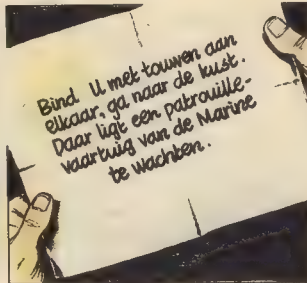 Bind U met touwen aan
elkaar, ga naar de kust.
Daar ligt een patrouille-
vaartuig van de Marine
te wachten.